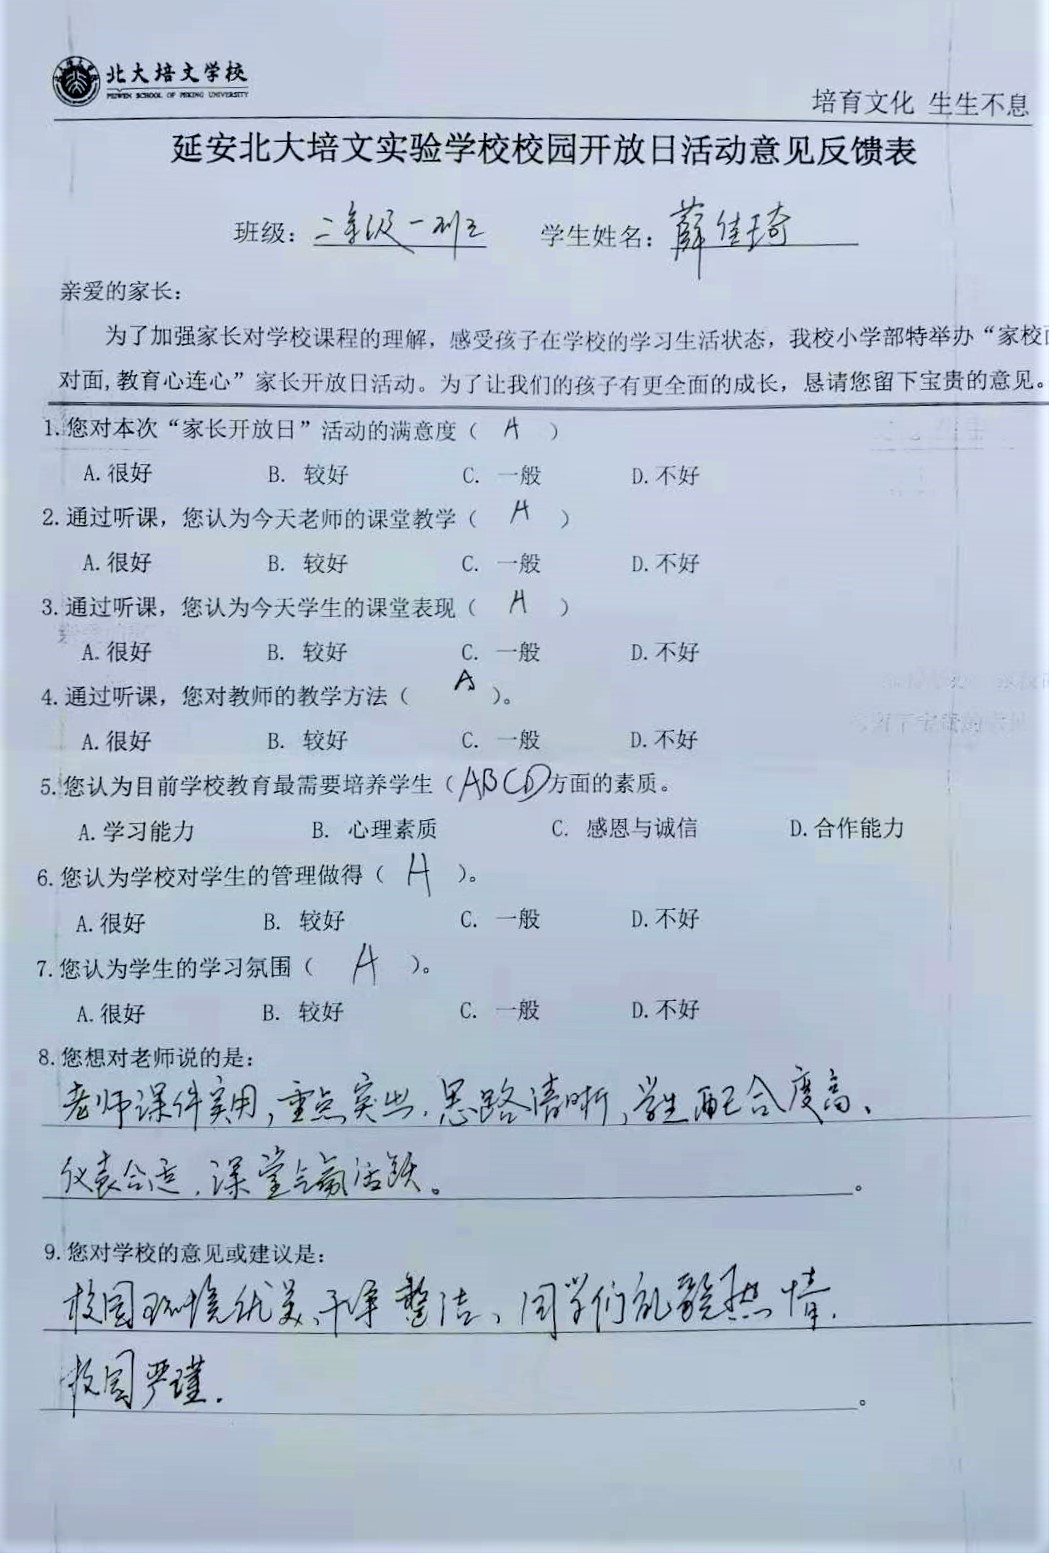 北大培文学校
PEIWEN SCHOOL OF PEKING UNIVERSITY
培育文化 生生不息
延安北大培文实验学校校园开放日活动意见反馈表
班级：二年级一班 学生姓名：薛佳琦
亲爱的家长：
为了加强家长对学校课程的理解，感受孩子在学校的学习生活状态，我校小学部特举办“家校面
对面,教育心连心”家长开放日活动。为了让我们的孩子有更全面的成长，恳请您留下宝贵的意见。
1.您对本次“家长开放日”活动的满意度（ A ）
A.很好 B. 较好 C. 一般 D.不好
2.通过听课，您认为今天老师的课堂教学（ A ）
A.很好 B. 较好 C. 一般 D.不好
3.通过听课，您认为今天学生的课堂表现（ A ）
A.很好 B. 较好 C. 一般 D.不好
4.通过听课，您对教师的教学方法（ A ）。
A.很好 B. 较好 C. 一般 D.不好
5.您认为目前学校教育最需要培养学生（ABCD）方面的素质。
A.学习能力 B. 心理素质 C. 感恩与诚信 D.合作能力
6.您认为学校对学生的管理做得（ A ）。
A.很好 B. 较好 C. 一般 D.不好
7.您认为学生的学习氛围（ A ）。
A.很好 B. 较好 C. 一般 D.不好
8.您想对老师说的是：
老师课件实用，重点突出，思路清晰，学生配合度高、
仪表合适，课堂气氛活跃。。
9.您对学校的意见或建议是：
校园环境优美、干净整洁、同学们礼貌热情.
校园严谨.。